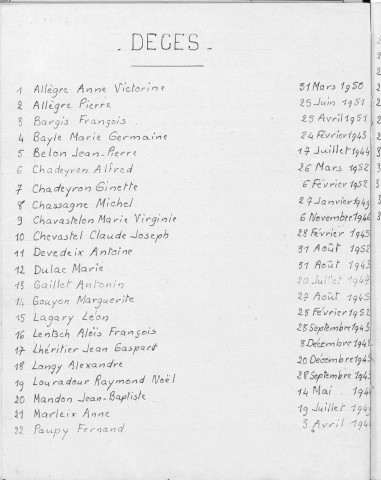 - DECES -
1 Allègre Anne Victorine 31 Mars 1950
2 Allègre Pierre 25 Juin 1951
3 Bargis François 25 Avril 1951
4 Bayle Marie Germaine 24 Février 1943
5 Belon Jean-Pierre 17 Juillet 1944
6 Chadeyron Alfred 26 Mars 1952
7 Chadeyron Ginette 6 Février 1952
8 Chassagne Michel 27 Janvier
9 Chavastelon Marie Virginie 6 Novembre
10 Chevastel Claude Joseph 28 Février
11 Devedeix Antoine 31 Août 1952
12 Dulac Marie 31 Août 1943
13 Gaillot Antonin 20 Juillet
14 Gouyon Marguerite 27 Août
15 Lagary Léon 28 Février 1952
16 Lentsch Aloïs François 28 Septembre
17 Lhéritier Jean Gaspart 8 Décembre
18 Longy Alexandre 20 Décembre
19 Louradour Raymond Noël 28 Septembre
20 Mandon Jean-Baptiste 14 Mai
21 Marleix Anne 19 Juillet
22 Paupy Fernand 3 Avril